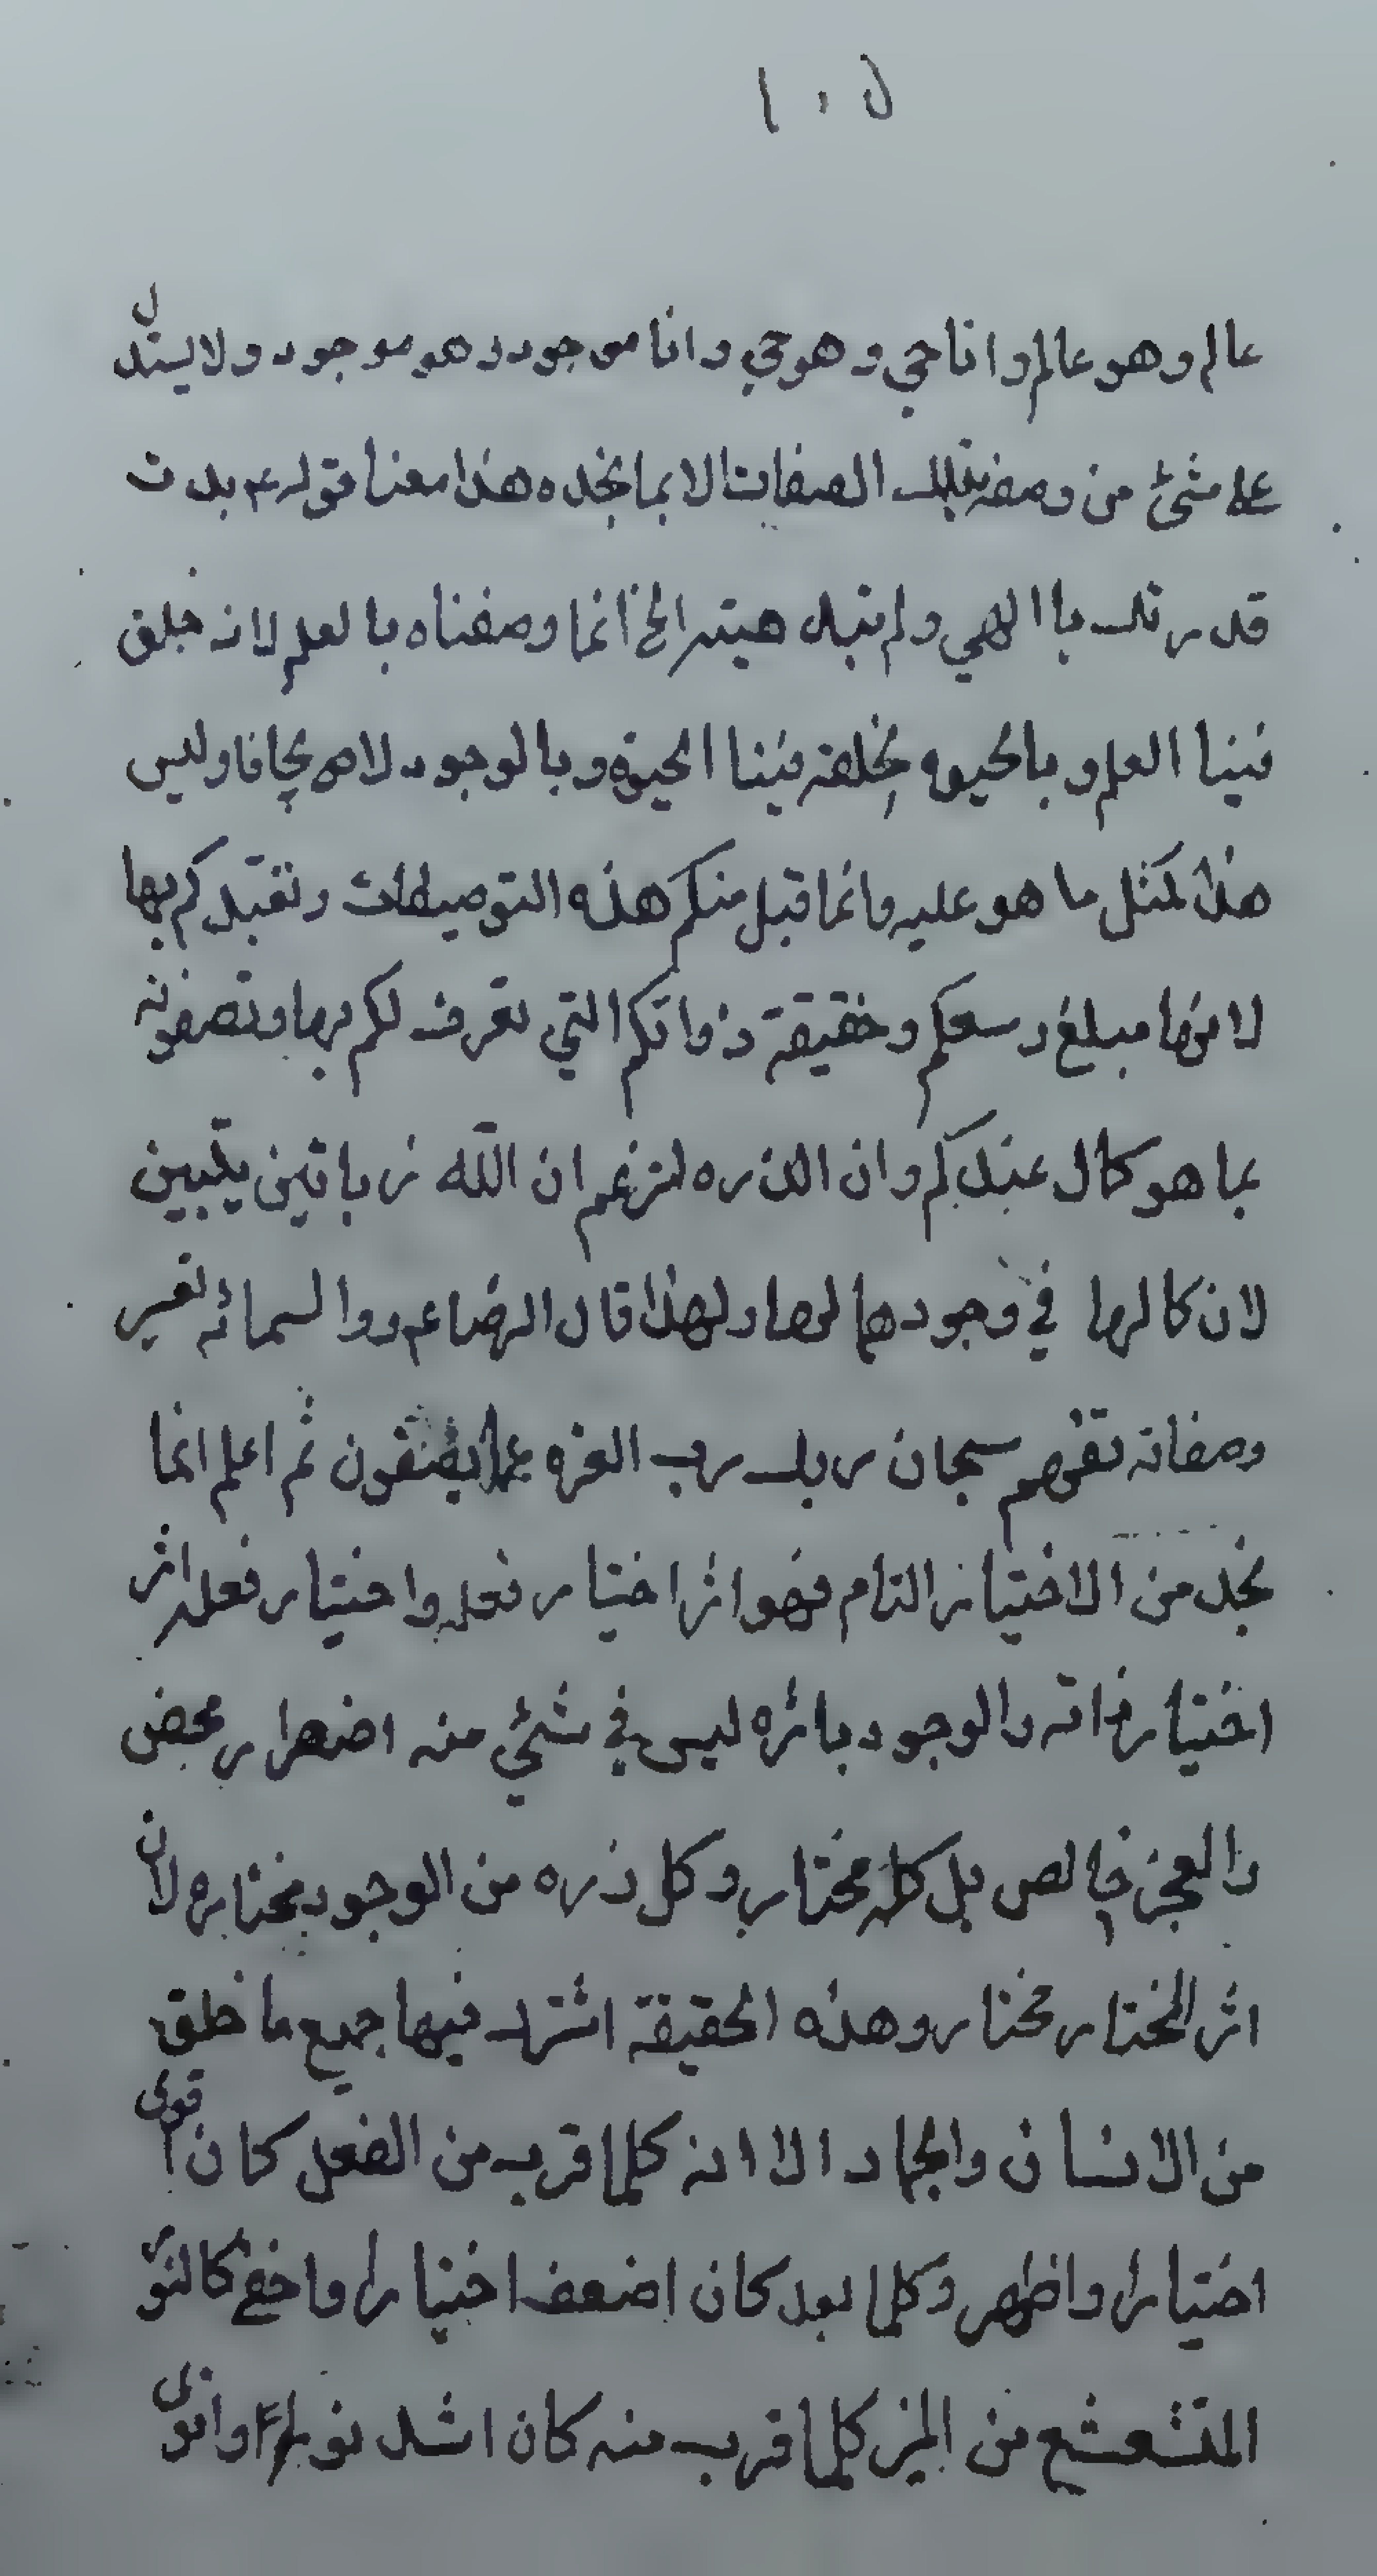 ١٠٥
عالم وهو عالم وانا حي وهو حي وانا موجود وهو موجود ولا يستدل
على شئ من وصفه بتلك الصفات الا بما نجده هذا معنا قوله عم بدت
قدرتك يا الهي ولم تبد هيئته الخ انما وصفناه بالعلم لانه خلق
فينا العلم وبالحيوة لخلقه فينا الحيوة وبالوجود لايجادنا وليس
هذا كمثل ما هو عليه وانما قبل منكم هذه التوصيفات وتعبدكم بها
لانها مبلغ وسعكم وحقيقة ذواتكم التي تعرف لكم بها وتصفونه
بما هو كمال عندكم وان الذره لتزعم ان الله زبانيتين
لان كمالها في وجودهما لها ولهذا قال الرضا عم واسمائه تعبير
وصفاته تفهيم سبحان ربك رب العزه عما يصفون ثم اعلم انما
نجد من الاختيار التام فهو اثر اختيار فعله واختيار فعله اثر
اختيار ذاته والوجود باثره ليس في شئي منه اضطرار محض
والعجز خالص بل كله مختار وكل ذره من الوجود مختاره لان
اثر المختار مختار وهذه الحقيقة اشترك فيها جميع ما خلق
من الانسان والجماد الا انه كلما قرب من الفعل كان اقوى
اختيارا واظهر وكلما بعد كان اضعف اختيارا واخفى كالنور
المتشعشع من المنير كلما قرب منه كان اشد نورا واقوى